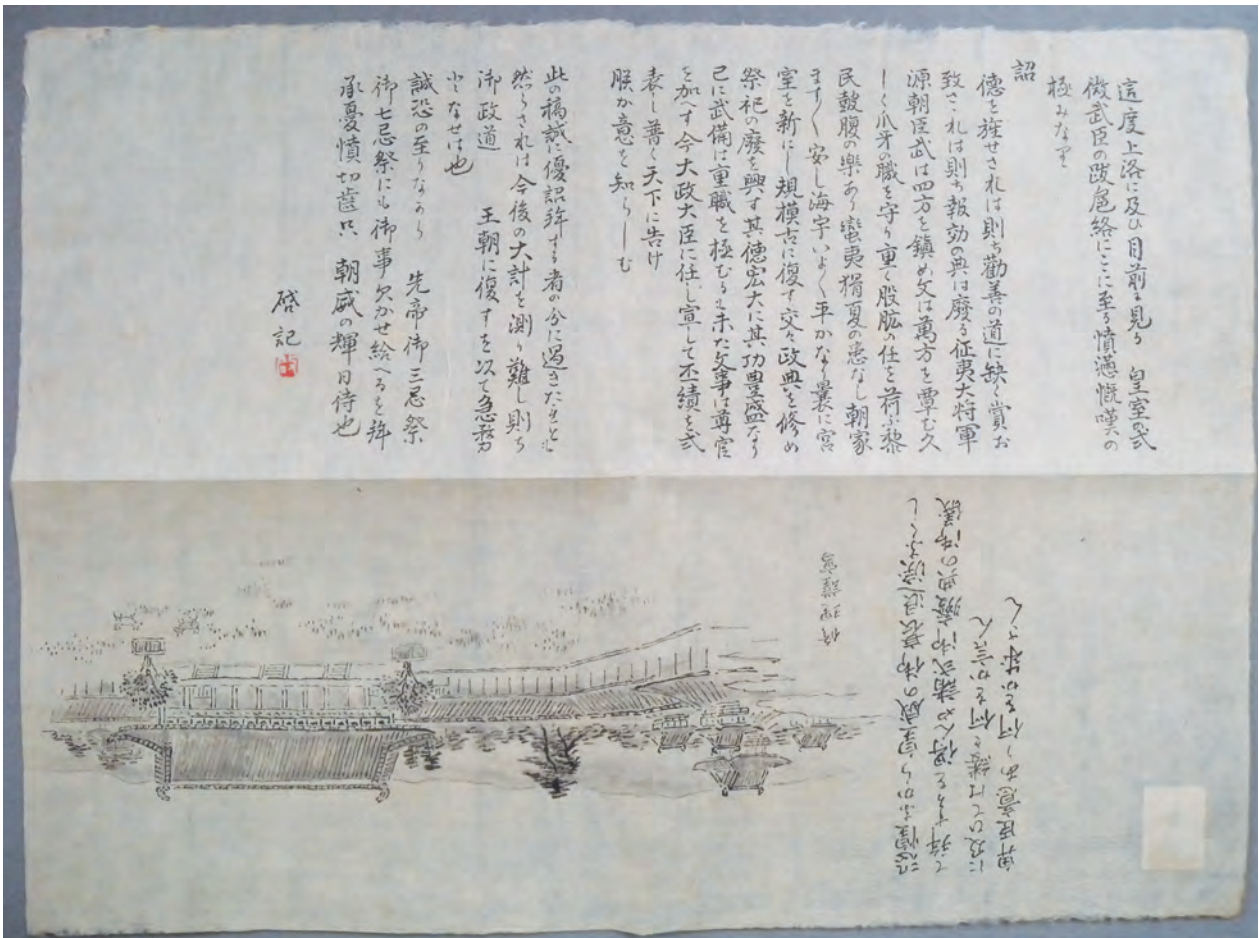 這度上洛に及ひ目前に見る 皇室の式
微武臣の跋扈終にここに至る憤懣慨嘆の
極みなり
詔
徳を旌せされは則ち勸善の道に缺く賞お
致されは則ち報効の典は廢る征夷大将軍
源朝臣武は四方を鎮め文は萬方を覃む久
しく爪牙の職を守り重く股肱の任を荷ふ黎
民鼓腹の楽あり蛮夷猾夏の患なし朝家
ます〱安し海宇いよ〱平かなり曩に宮
室を新にし規模古に復す交々政典を修め
祭祀の廢を興す其徳宏大に其功豊盛なり
已に武備は重職を極むるに未た文事は尊官
を加へす今大政大臣に任し宣して丕績を式
表し普く天下に告け
朕か意を知らしむ
此の稿誠に優詔拜する者の分に過きたりと
然らされは今後の大計を測り難し則ち
御政道 王朝に復すを以て急務
となせは也
誠恐の至りなから 先帝御三忌祭
御七忌祭にも御事欠かせ給へるを拜
承憂憤切歯只 朝威の輝日待也
啓記
修理
恐惶なから皇威の御衰退涙なくし
て拜するを得んや諸式御廢典の御儀
に及ひては誰を何をか言さん
臣意あり何をか